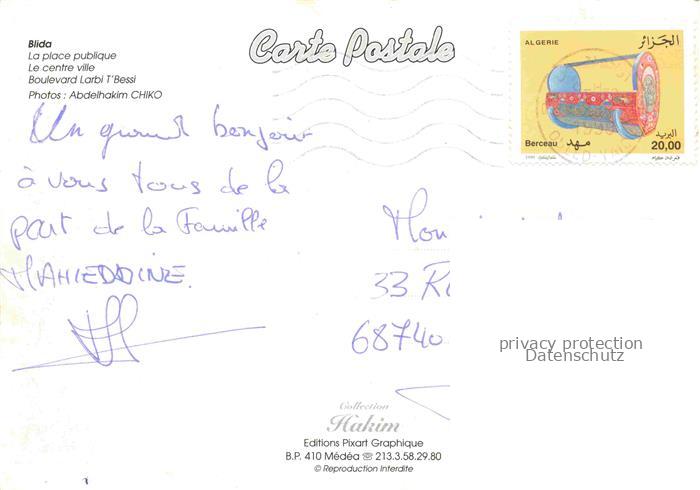 Blida
La place publique
Le centre ville
Boulevard Larbi T'Bessi
Photos : Abdelhakim CHIKO
Carte Postale
ALGERIE الجزائر
Berceau مهد البريد
20,00
Un grand bonjour
à vous tous de la
part de la Famille
MAHIEDDINE.
Mon
33 R
68740
privacy protection
Datenschutz
Collection
Hakim
Editions Pixart Graphique
B.P. 410 Médéa ☏ 213.3.58.29.80
© Reproduction Interdite